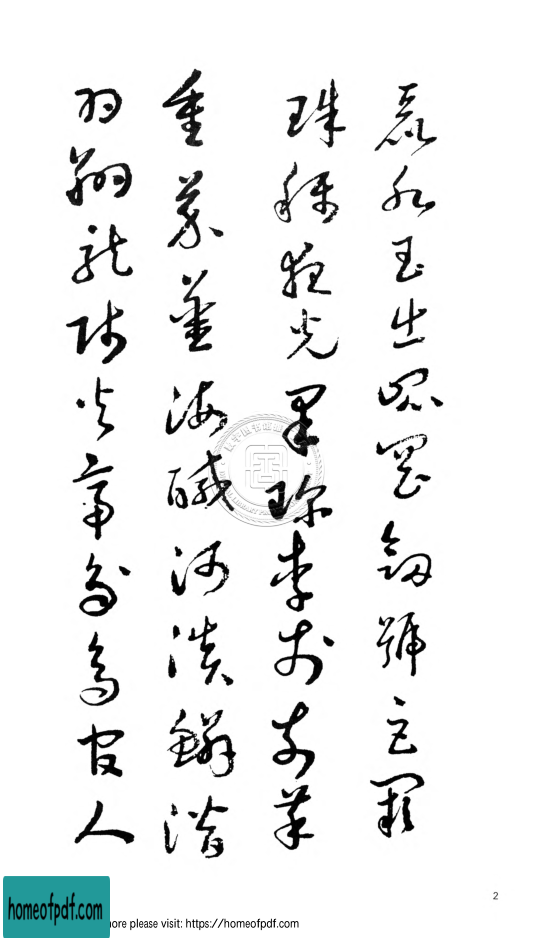 麗水玉出崐岡劍號巨闕
珠稱夜光果珍李柰菜
重芥薑海醎河淡鱗潛
羽翔龍師火帝鳥官人
2
homeofpdf.com
more please visit: https://homeofpdf.com